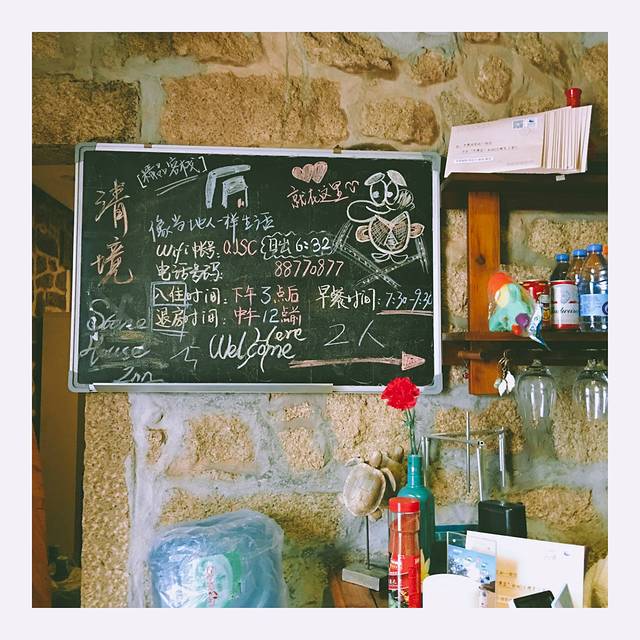 [精品客栈]
清境
就在这里
像当地人一样生活
Wifi帐号: QJSC
日出 6:32
电话号码: 88770877
入住时间: 下午3点后
早餐时间: 7:30-9:30
退房时间: 中午12点前
Stone
House
Inn
Here
Welcome
2人